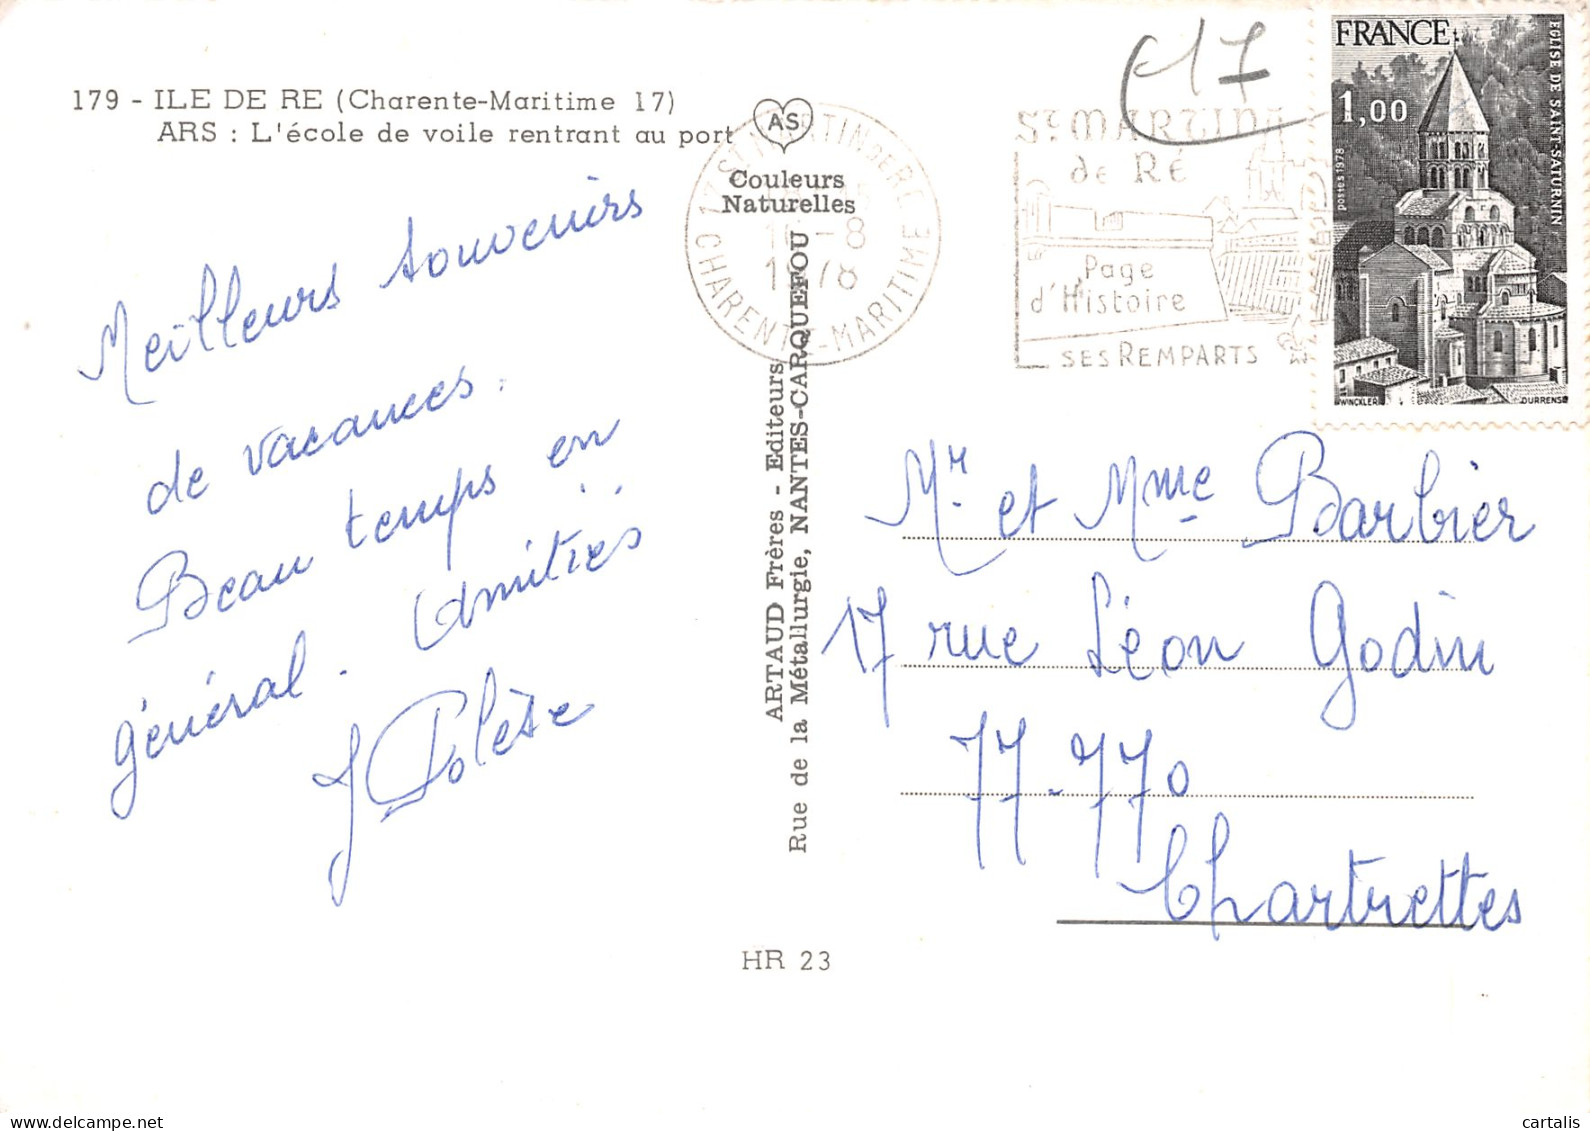 179 - ILE DE RE (Charente-Maritime 17)
ARS : L'école de voile rentrant au port
AS
Couleurs
Naturelles
Meilleurs souvenirs
de vacances.
Beau temps en
général. Amitiés
J Polèse
ARTAUD Frères - Editeurs
Rue de la Métallurgie, NANTES-CARQUEFOU
HR 23
17 ST MARTIN DE RE
-8
1978
CHARENTE-MARITIME
17
St MARTIN
de RÉ
Page
d'Histoire
SES REMPARTS
FRANCE
1,00
postes 1978
EGLISE DE SAINT-SATURNIN
WINCKLER
DURRENS
Mr. et Mme Barbier
17 rue Léon Godin
77-770
Chartrettes
cartalis
www.delcampe.net